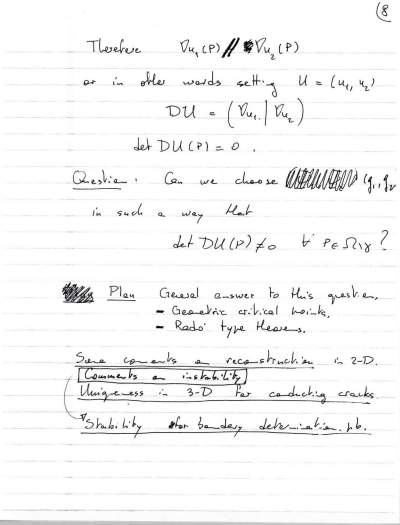 (8
Therefore ∇u₁(P) // ∇u₂(P)
or in other words setting U = (u₁, u₂)
DU = (∇u₁ | ∇u₂)
det DU(P) = 0 .
Question. Can we choose (g₁, g₂
in such a way that
det DU(P) ≠ 0 ∀ P ∈ Ω\γ ?
Plan General answer to this question.
- Geometric critical points.
- Radó type theorems.
Some comments on reconstruction in 2-D.
Comments on instability
Uniqueness in 3-D for conducting cracks
Stability for boundary determination pb.